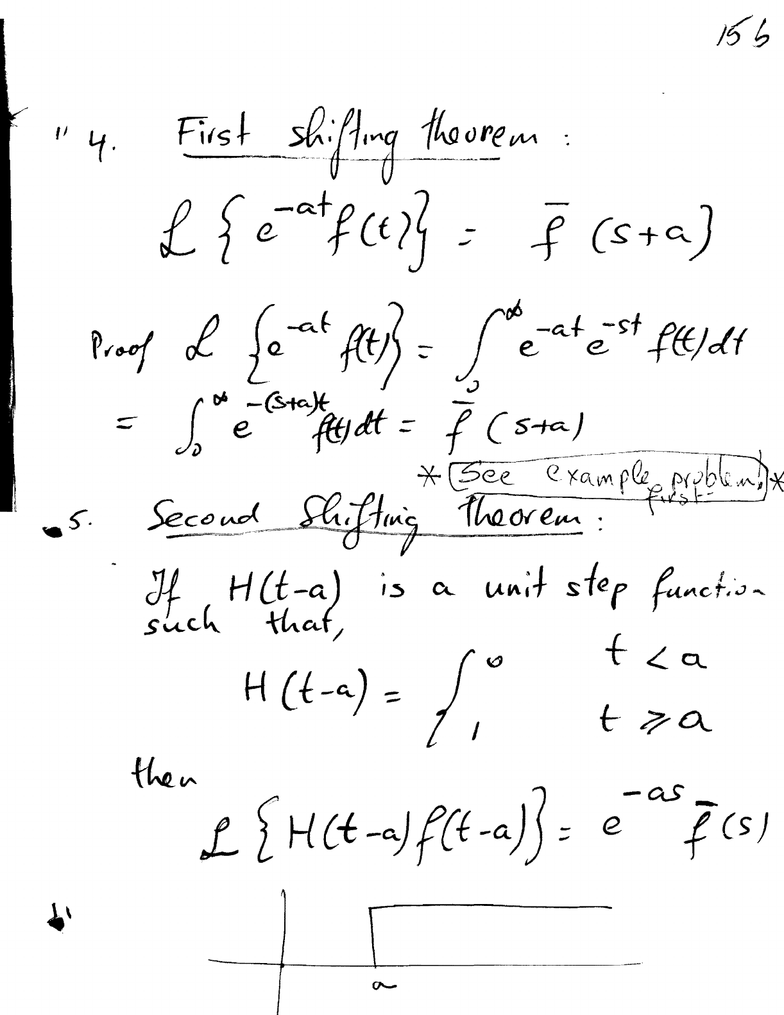 15b
" 4. First shifting theorem :
ℒ { e^{-at} f(t) } = f̄ (s+a)
Proof ℒ { e^{-at} f(t) } = ∫_0^∞ e^{-at} e^{-st} f(t) dt
= ∫_0^∞ e^{-(s+a)t} f(t) dt = f̄ (s+a)
* See example problem! *
first
5. Second Shifting Theorem :
If H(t-a) is a unit step function
such that,
H(t-a) = { 0 t < a
1 t ⩾ a
then
ℒ { H(t-a) f(t-a) } = e^{-as} f̄(s)
a